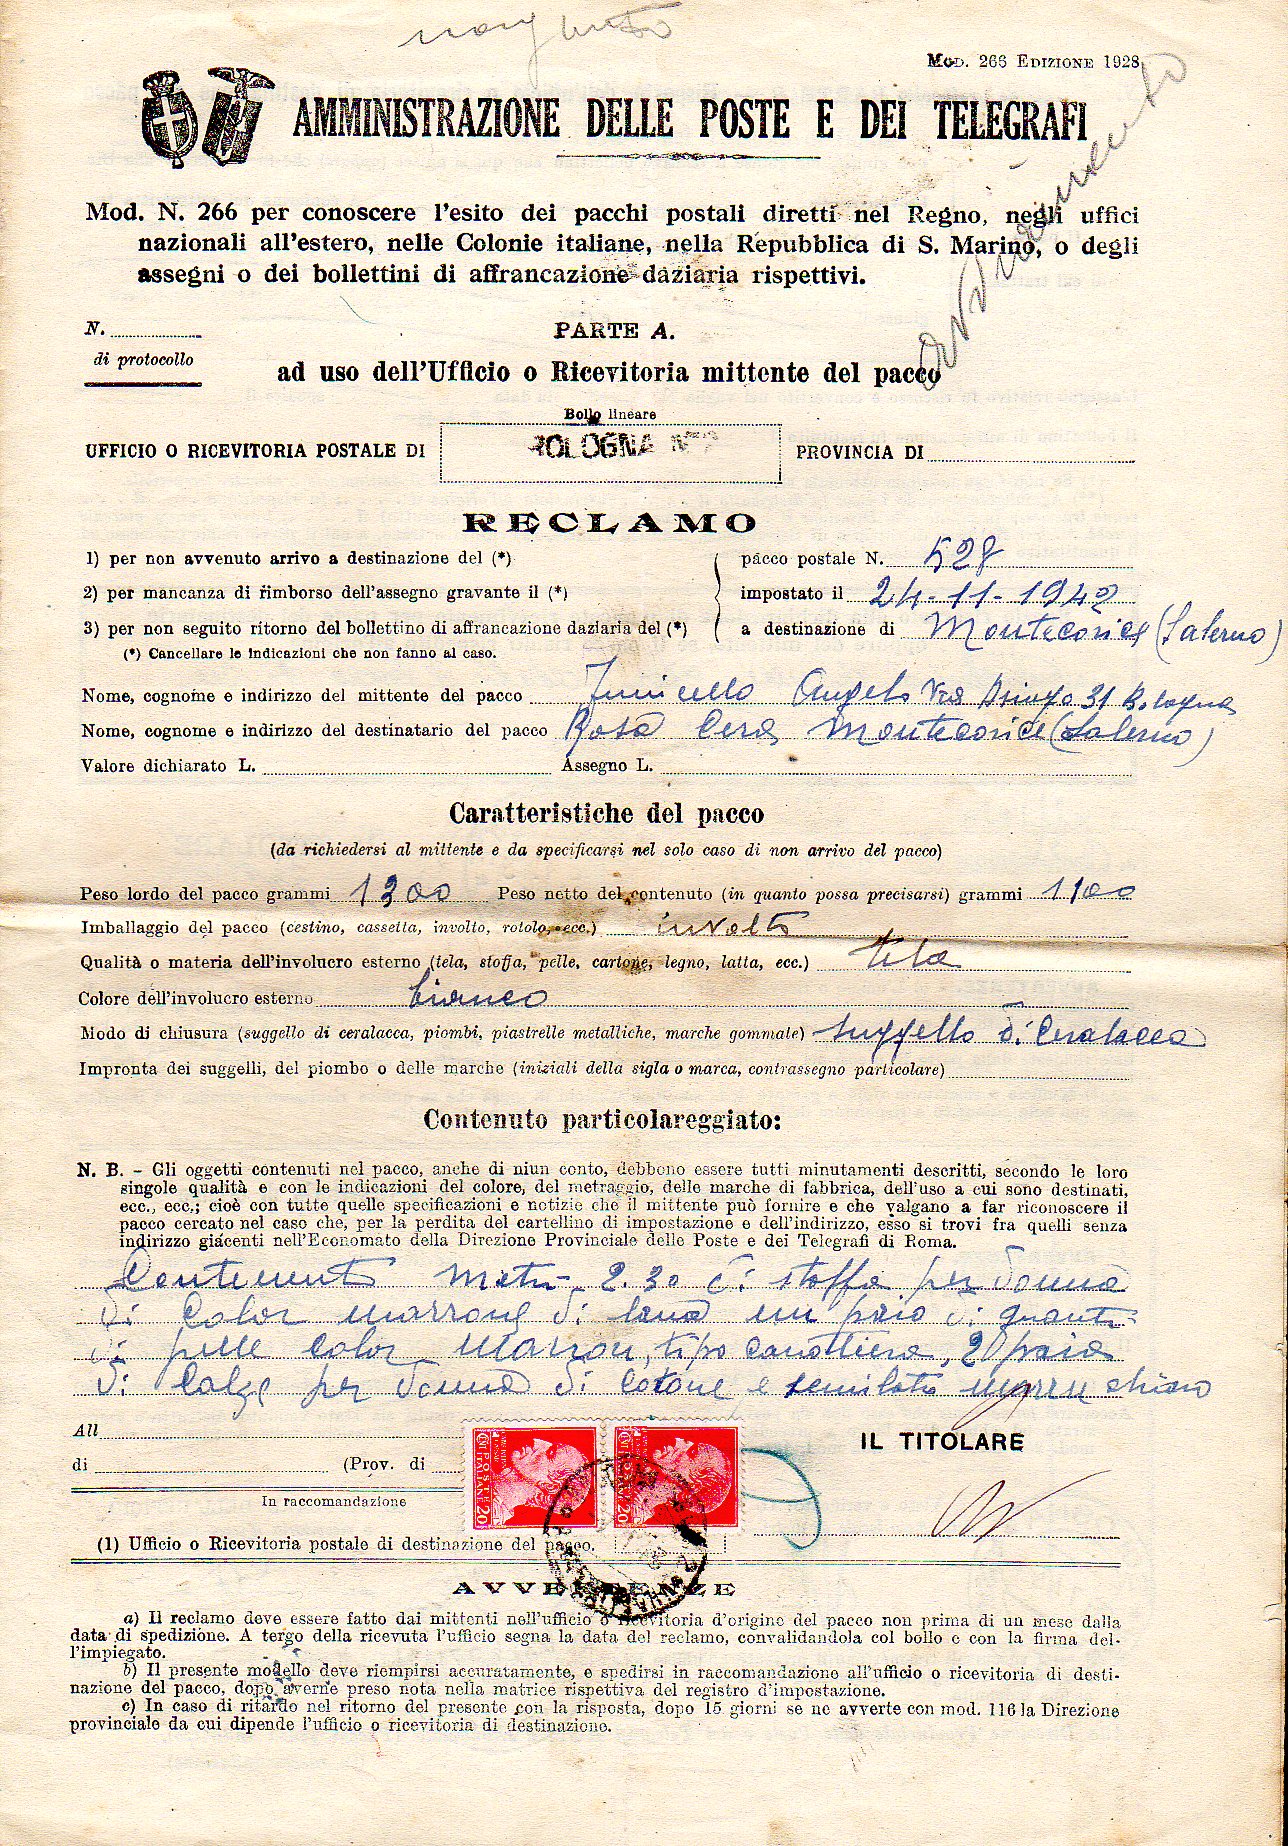 Mod. 266 Edizione 1928
AMMINISTRAZIONE DELLE POSTE E DEI TELEGRAFI
Mod. N. 266 per conoscere l'esito dei pacchi postali diretti nel Regno, negli uffici
nazionali all'estero, nelle Colonie italiane, nella Repubblica di S. Marino, o degli
assegni o dei bollettini di affrancazione daziaria rispettivi.
N.
di protocollo
PARTE A.
ad uso dell'Ufficio o Ricevitoria mittente del pacco
Bollo lineare
UFFICIO O RICEVITORIA POSTALE DI BOLOGNA PROVINCIA DI
RECLAMO
1) per non avvenuto arrivo a destinazione del (*) pacco postale N. 528
2) per mancanza di rimborso dell'assegno gravante il (*) impostato il 24-11-1942
3) per non seguito ritorno del bollettino di affrancazione daziaria del (*) a destinazione di Montecorice (Salerno)
(*) Cancellare le indicazioni che non fanno al caso.
Nome, cognome e indirizzo del mittente del pacco Angelo Via 31 Bologna
Nome, cognome e indirizzo del destinatario del pacco Rosa Cera Montecorice (Salerno)
Valore dichiarato L. Assegno L.
Caratteristiche del pacco
(da richiedersi al mittente e da specificarsi nel solo caso di non arrivo del pacco)
Peso lordo del pacco grammi 1300 Peso netto del contenuto (in quanto possa precisarsi) grammi 1100
Imballaggio del pacco (cestino, cassetta, involto, rotolo, ecc.) involto
Qualità o materia dell'involucro esterno (tela, stoffa, pelle, cartone, legno, latta, ecc.) tela
Colore dell'involucro esterno bianco
Modo di chiusura (suggello di ceralacca, piombi, piastrelle metalliche, marche gommate) suggello di ceralacca
Impronta dei suggelli, del piombo o delle marche (iniziali della sigla o marca, contrassegno particolare)
Contenuto particolareggiato:
N. B. - Gli oggetti contenuti nel pacco, anche di niun conto, debbono essere tutti minutamenti descritti, secondo le loro
singole qualità e con le indicazioni del colore, del metraggio, delle marche di fabbrica, dell'uso a cui sono destinati,
ecc., ecc.; cioè con tutte quelle specificazioni e notizie che il mittente può fornire e che valgano a far riconoscere il
pacco cercato nel caso che, per la perdita del cartellino di impostazione e dell'indirizzo, esso si trovi fra quelli senza
indirizzo giacenti nell'Economato della Direzione Provinciale delle Poste e dei Telegrafi di Roma.
Contenente metri 2.30 di stoffa per donna
di color marrone di lana un paio di guanti
di pelle color marron, tipo canottiera, 2 paia
di calze per donna di cotone e semilata marron chiaro
All
di (Prov. di
In raccomandazione
IL TITOLARE
POSTE ITALIANE 20
POSTE ITALIANE 20
(1) Ufficio o Ricevitoria postale di destinazione del pacco.
AVVERTENZE
a) Il reclamo deve essere fatto dai mittenti nell'ufficio o ricevitoria d'origine del pacco non prima di un mese dalla
data di spedizione. A tergo della ricevuta l'ufficio segna la data del reclamo, convalidandola col bollo e con la firma del-
l'impiegato.
b) Il presente modello deve riempirsi accuratamente, e spedirsi in raccomandazione all'ufficio o ricevitoria di desti-
nazione del pacco, dopo averne preso nota nella matrice rispettiva del registro d'impostazione.
c) In caso di ritardo nel ritorno del presente con la risposta, dopo 15 giorni se ne avverte con mod. 116 la Direzione
provinciale da cui dipende l'ufficio o ricevitoria di destinazione.